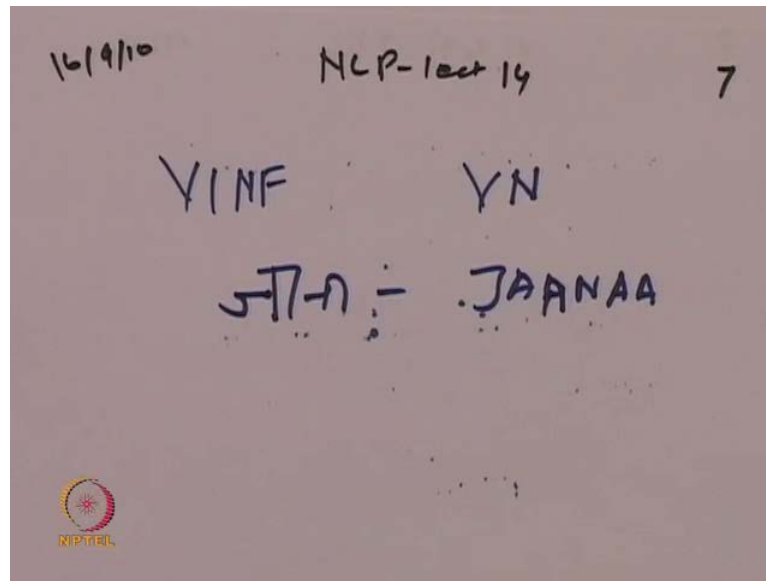 16/9/10 NLP-lect 14 7
VINF VN
जाना :- JAANAA
NPTEL